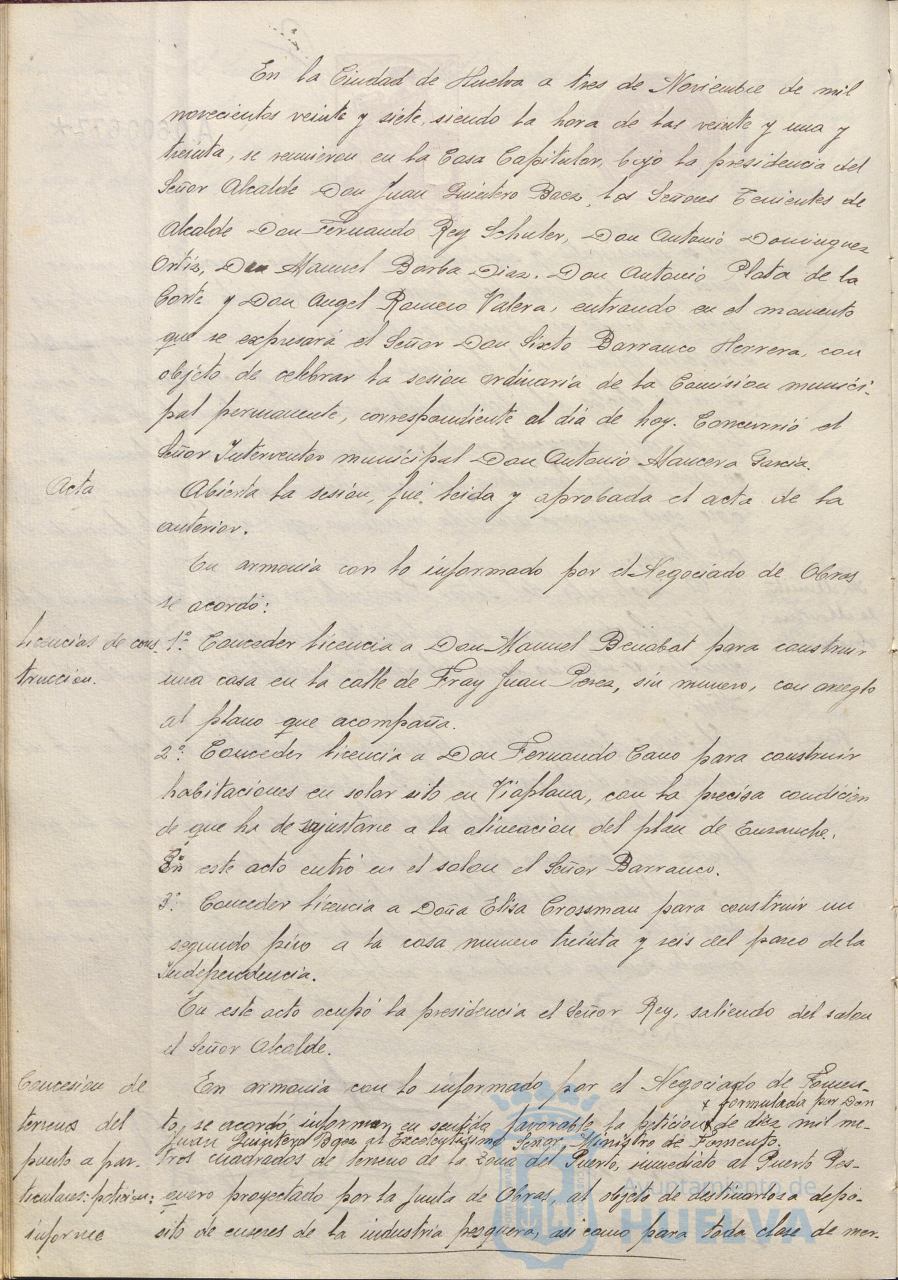 En la Ciudad de Huelva a tres de Noviembre de mil
novecientos veinte y siete, siendo la hora de las veinte y una y
treinta, se reunieron en la Casa Capitular, bajo la presidencia del
Señor Alcalde Don Juan Quintero Baez, los Señores Tenientes de
Alcalde Don Fernando Rey Schuler, Don Antonio Dominguez
Ortiz, Don Manuel Barba Diaz, Don Antonio Plata de la
Corte y Don Angel Romero Valera, entrando en el momento
que se expresará el Señor Don Sixto Barranco Herrera, con
objeto de celebrar la sesion ordinaria de la Comision munici-
pal permanente, correspondiente al dia de hoy. Concurrió el
Señor Interventor municipal Don Antonio Mancera Garcia.
Acta
Abierta la sesion, fué leida y aprobada el acta de la
anterior.
En armonia con lo informado por el Negociado de Obras
se acordó:
Licencias de cons-
truccion.
1º. Conceder licencia a Don Manuel Benabat para construir
una casa en la calle de Fray Juan Perez, sin numero, con arreglo
al plano que acompaña.
2º. Conceder licencia a Don Fernando Cano para construir
habitaciones en solar sito en Viaplana, con la precisa condicion
de que ha de ajustarse a la alineacion del plan de Ensanche.
En este acto entró en el salon el Señor Barranco.
3º. Conceder licencia a Doña Elisa Crossman para construir un
segundo piso a la casa numero treinta y seis del paseo de la
Independencia.
En este acto ocupó la presidencia el Señor Rey, saliendo del salon
el Señor Alcalde.
Concesion de
terrenos del
puerto a par-
ticulares: peticion:
informe
En armonia con lo informado por el Negociado de Fomen-
to, se acordó informar en sentido favorable la peticion de diez mil me-
x formulada por Don
Juan Quintero Baez al Excelentisimo Señor Ministro de Fomento.
tros cuadrados de terreno de la Zona del Puerto, inmediato al Puerto Pes-
quero proyectado por la Junta de Obras, al objeto de destinarlos a depó-
sito de enseres de la industria pesquera, asi como para toda clase de mer-
Ayuntamiento de
HUELVA